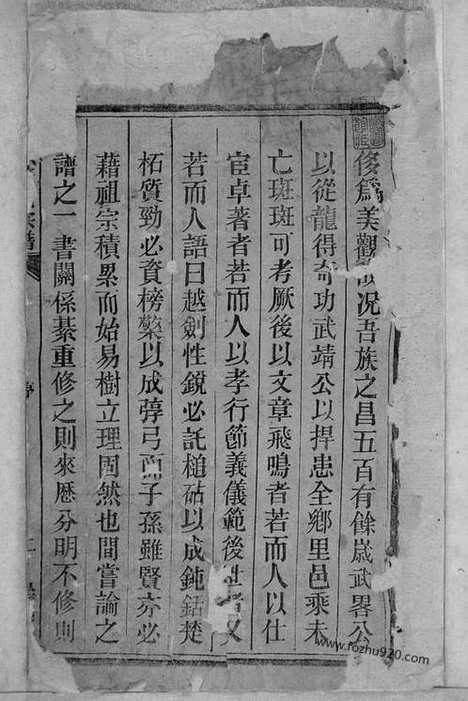 侈為美觀哉况吾族之昌五百有餘歲武畧公
以從龍得奇功武靖公以捍患全鄉里邑乘未
亡斑斑可考厥後以文章飛鳴者若而人以仕
宦卓著者若而人以孝行節義儀範後世者又
若而人語曰越劍性銳必託槌砧以成鈍鋙楚
柘質勁必資榜檠以成弴弓而子孫雖賢亦必
藉祖宗積累而始易樹立理固然也間嘗論之
譜之一書關係綦重修之則來歷分明不修則
www.fozhu920.com